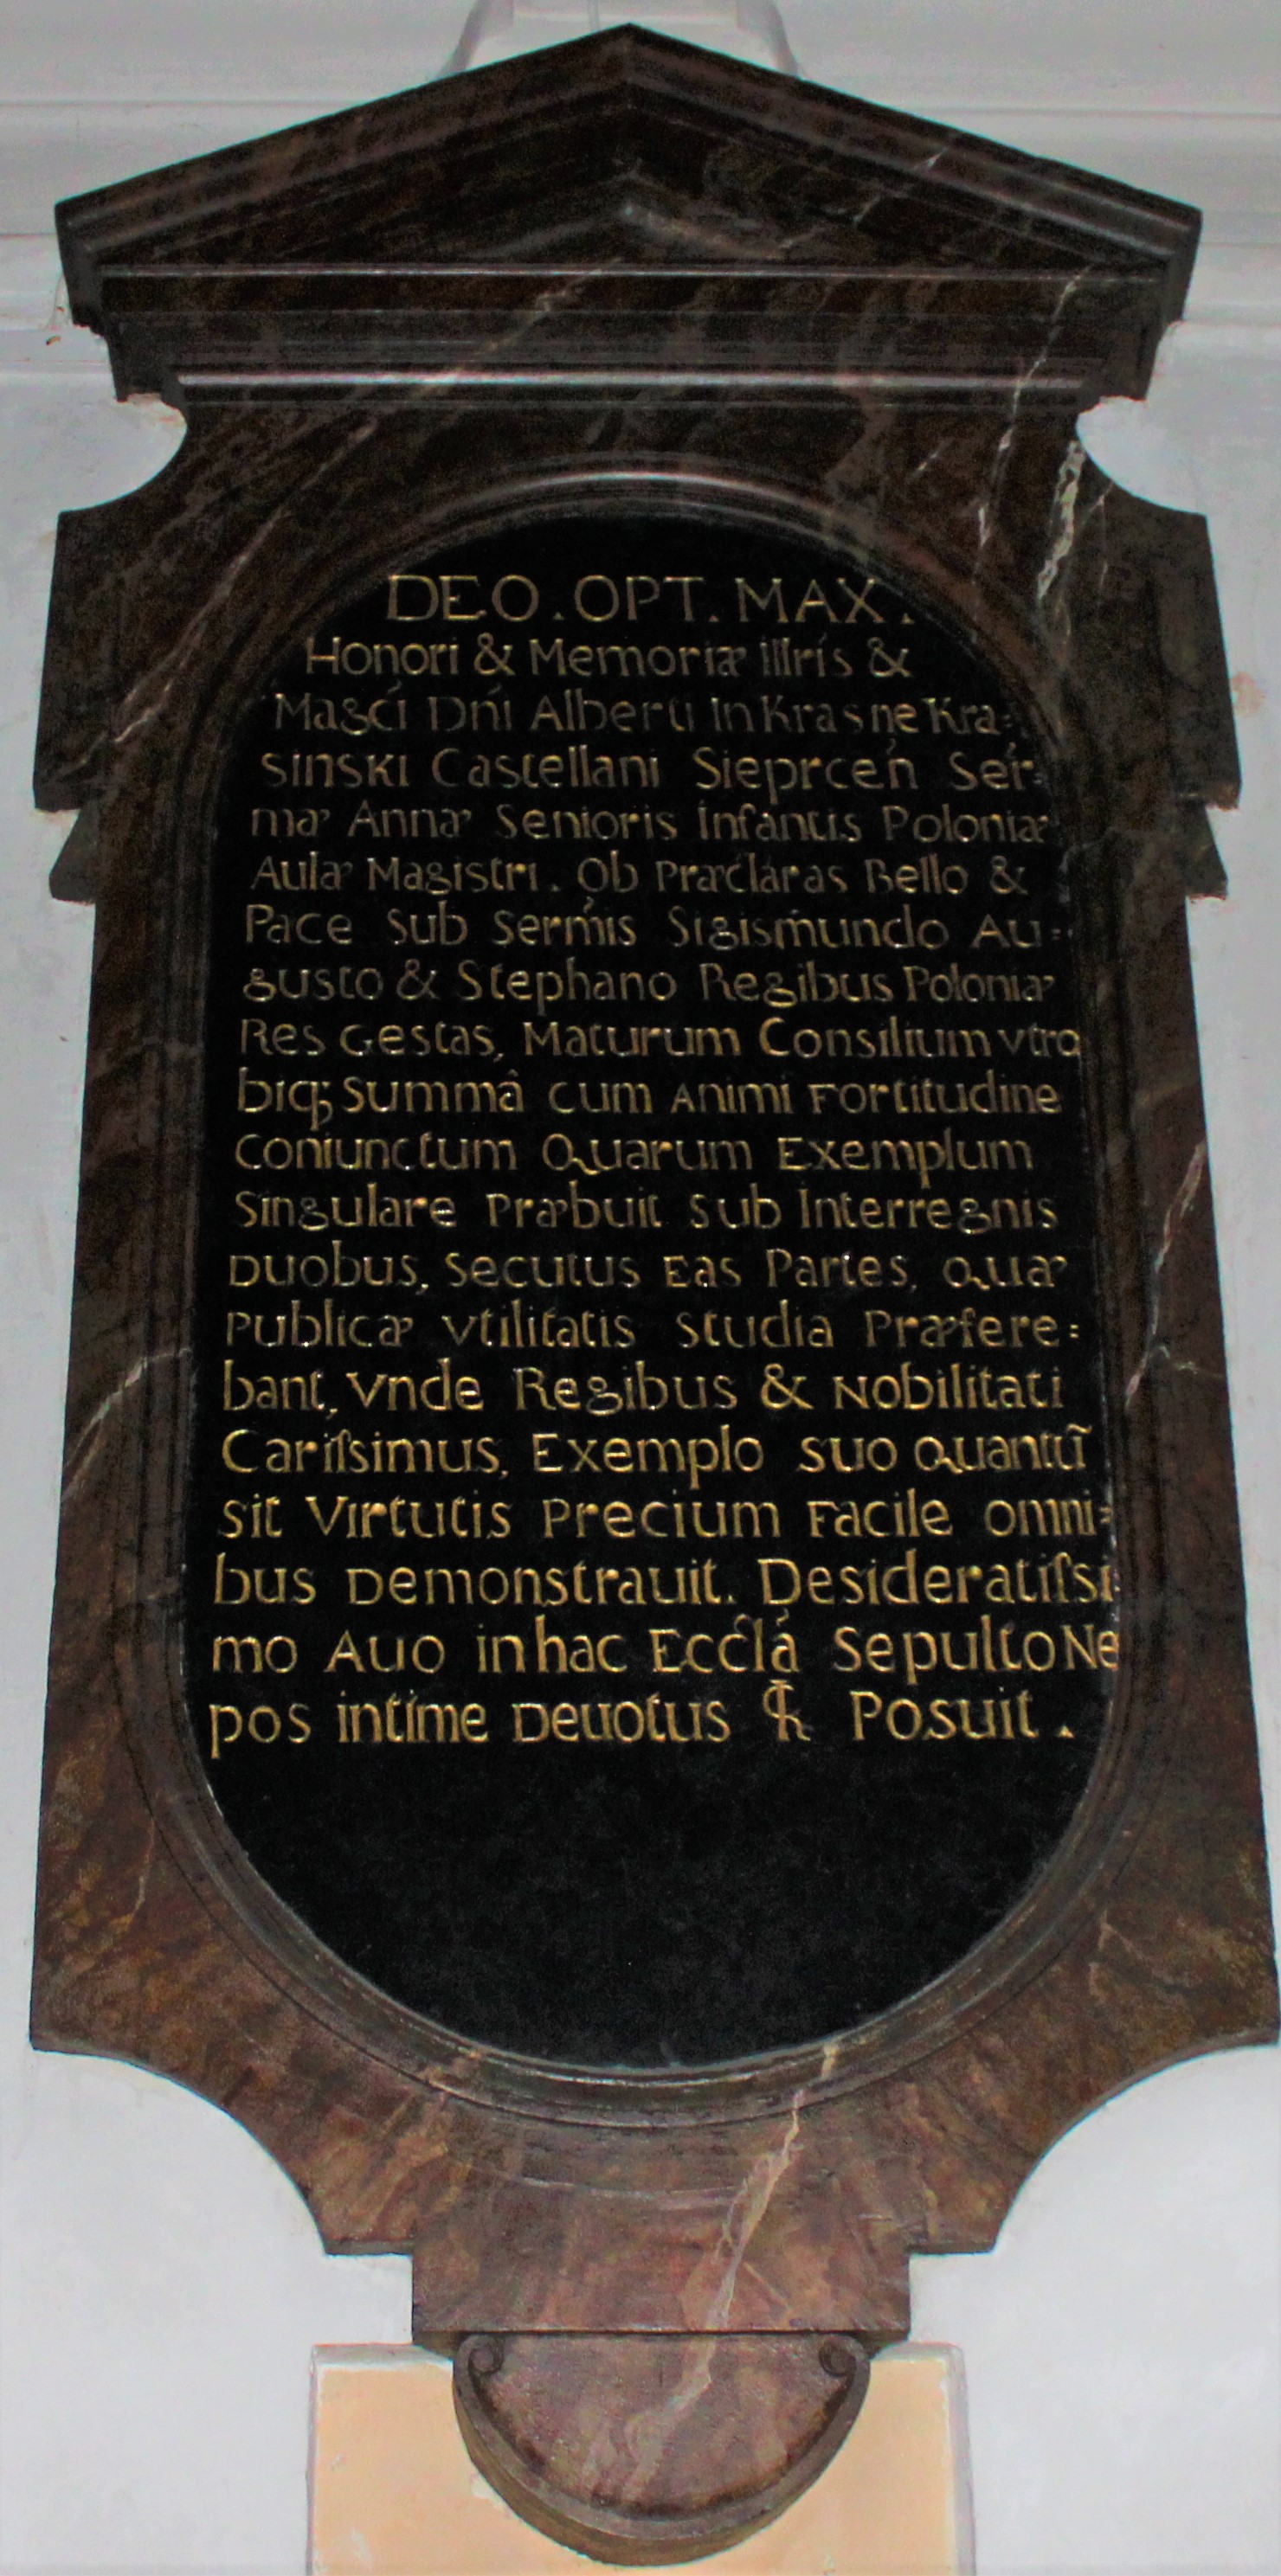 DEO . OPT . MAX .
Honori & Memoriæ Illris &
Magci Dni Alberti In Krasne Kra=
sinski Castellani Sieprcen Ser=
mæ Annæ Senioris Infantis Poloniæ
Aulæ Magistri . Ob Præclaras Bello &
Pace Sub Sermis Sigismundo Au=
gusto & Stephano Regibus Poloniæ
Res Gestas, Maturum Consilium vtro
biq; Summâ Cum Animi Fortitudine
Coniunctum Quarum Exemplum
Singulare Præbuit Sub Interregnis
Duobus, Secutus Eas Partes, Quæ
Publicæ Vtilitatis Studia Præfere=
bant, Vnde Regibus & Nobilitati
Cariſsimus, Exemplo Suo Quantũ
sit Virtutis Precium Facile Omni=
bus Demonstrauit. Desideratiſsi
mo Auo in hac Eccla Sepulto Ne
pos intime Deuotus Posuit .